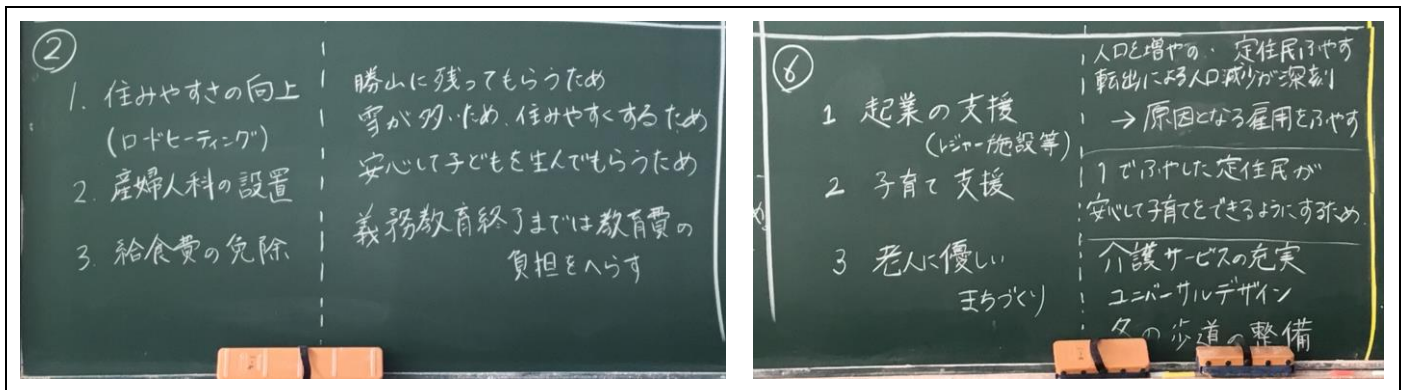 ②
1. 住みやすさの向上
(ロードヒーティング)
2. 産婦人科の設置
3. 給食費の免除
勝山に残ってもらうため
雪が多いため、住みやすくするため
安心して子どもを生んでもらうため
義務教育終了までは教育費の
負担をへらす
⑥
1 起業の支援
(レジャー施設等)
2 子育て支援
3 老人に優しい
まちづくり
定住民ふやす
転出による人口減少が深刻
→原因となる雇用をふやす
1でふやした定住民が
安心して子育てをできるようにするため
介護サービスの充実
ユニバーサルデザイン
冬の歩道の整備